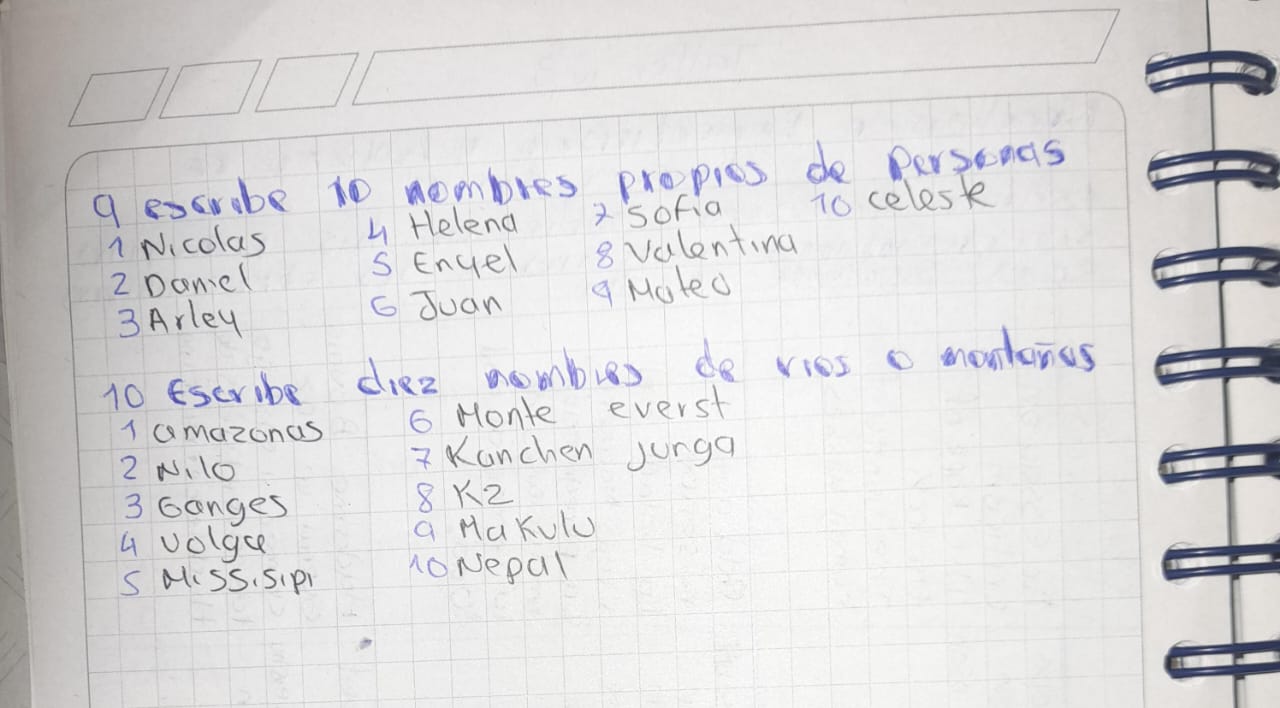 9 escribe 10 nombres propios de personas
1 Nicolas 4 Helena 7 Sofia 10 celeste
2 Daniel 5 Enyel 8 Valentina
3 Arley 6 Juan 9 Mateo
10 Escribe diez nombres de rios o montañas
1 amazonas 6 Monte everst
2 Nilo 7 Kanchen junga
3 Ganges 8 K2
4 volga 9 Makulu
5 Missisipi 10 Nepal